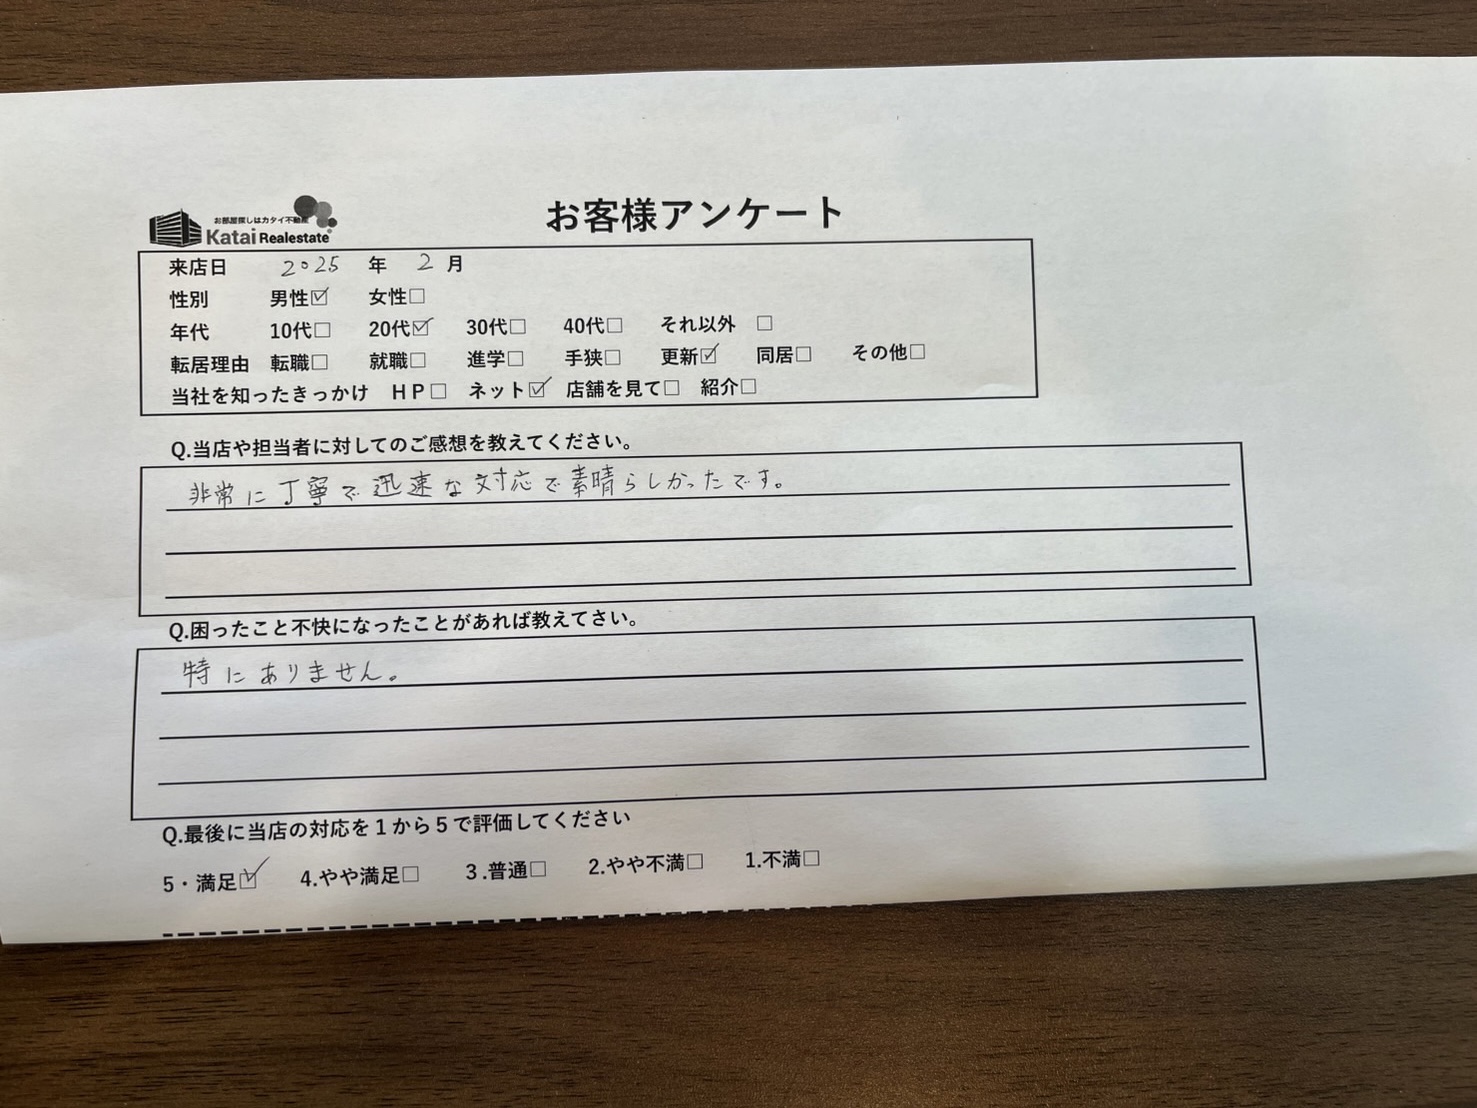 お部屋探しはカタイ不動産
Katai Realestate
お客様アンケート
来店日 2025 年 2 月
性別 男性☑ 女性□
年代 10代□ 20代☑ 30代□ 40代□ それ以外 □
転居理由 転職□ 就職□ 進学□ 手狭□ 更新☑ 同居□ その他□
当社を知ったきっかけ HP□ ネット☑ 店舗を見て□ 紹介□
Q.当店や担当者に対してのご感想を教えてください。
非常に丁寧で迅速な対応で素晴らしかったです。
Q.困ったこと不快になったことがあれば教えてさい。
特にありません。
Q.最後に当店の対応を1から5で評価してください
5・満足☑ 4.やや満足□ 3.普通□ 2.やや不満□ 1.不満□